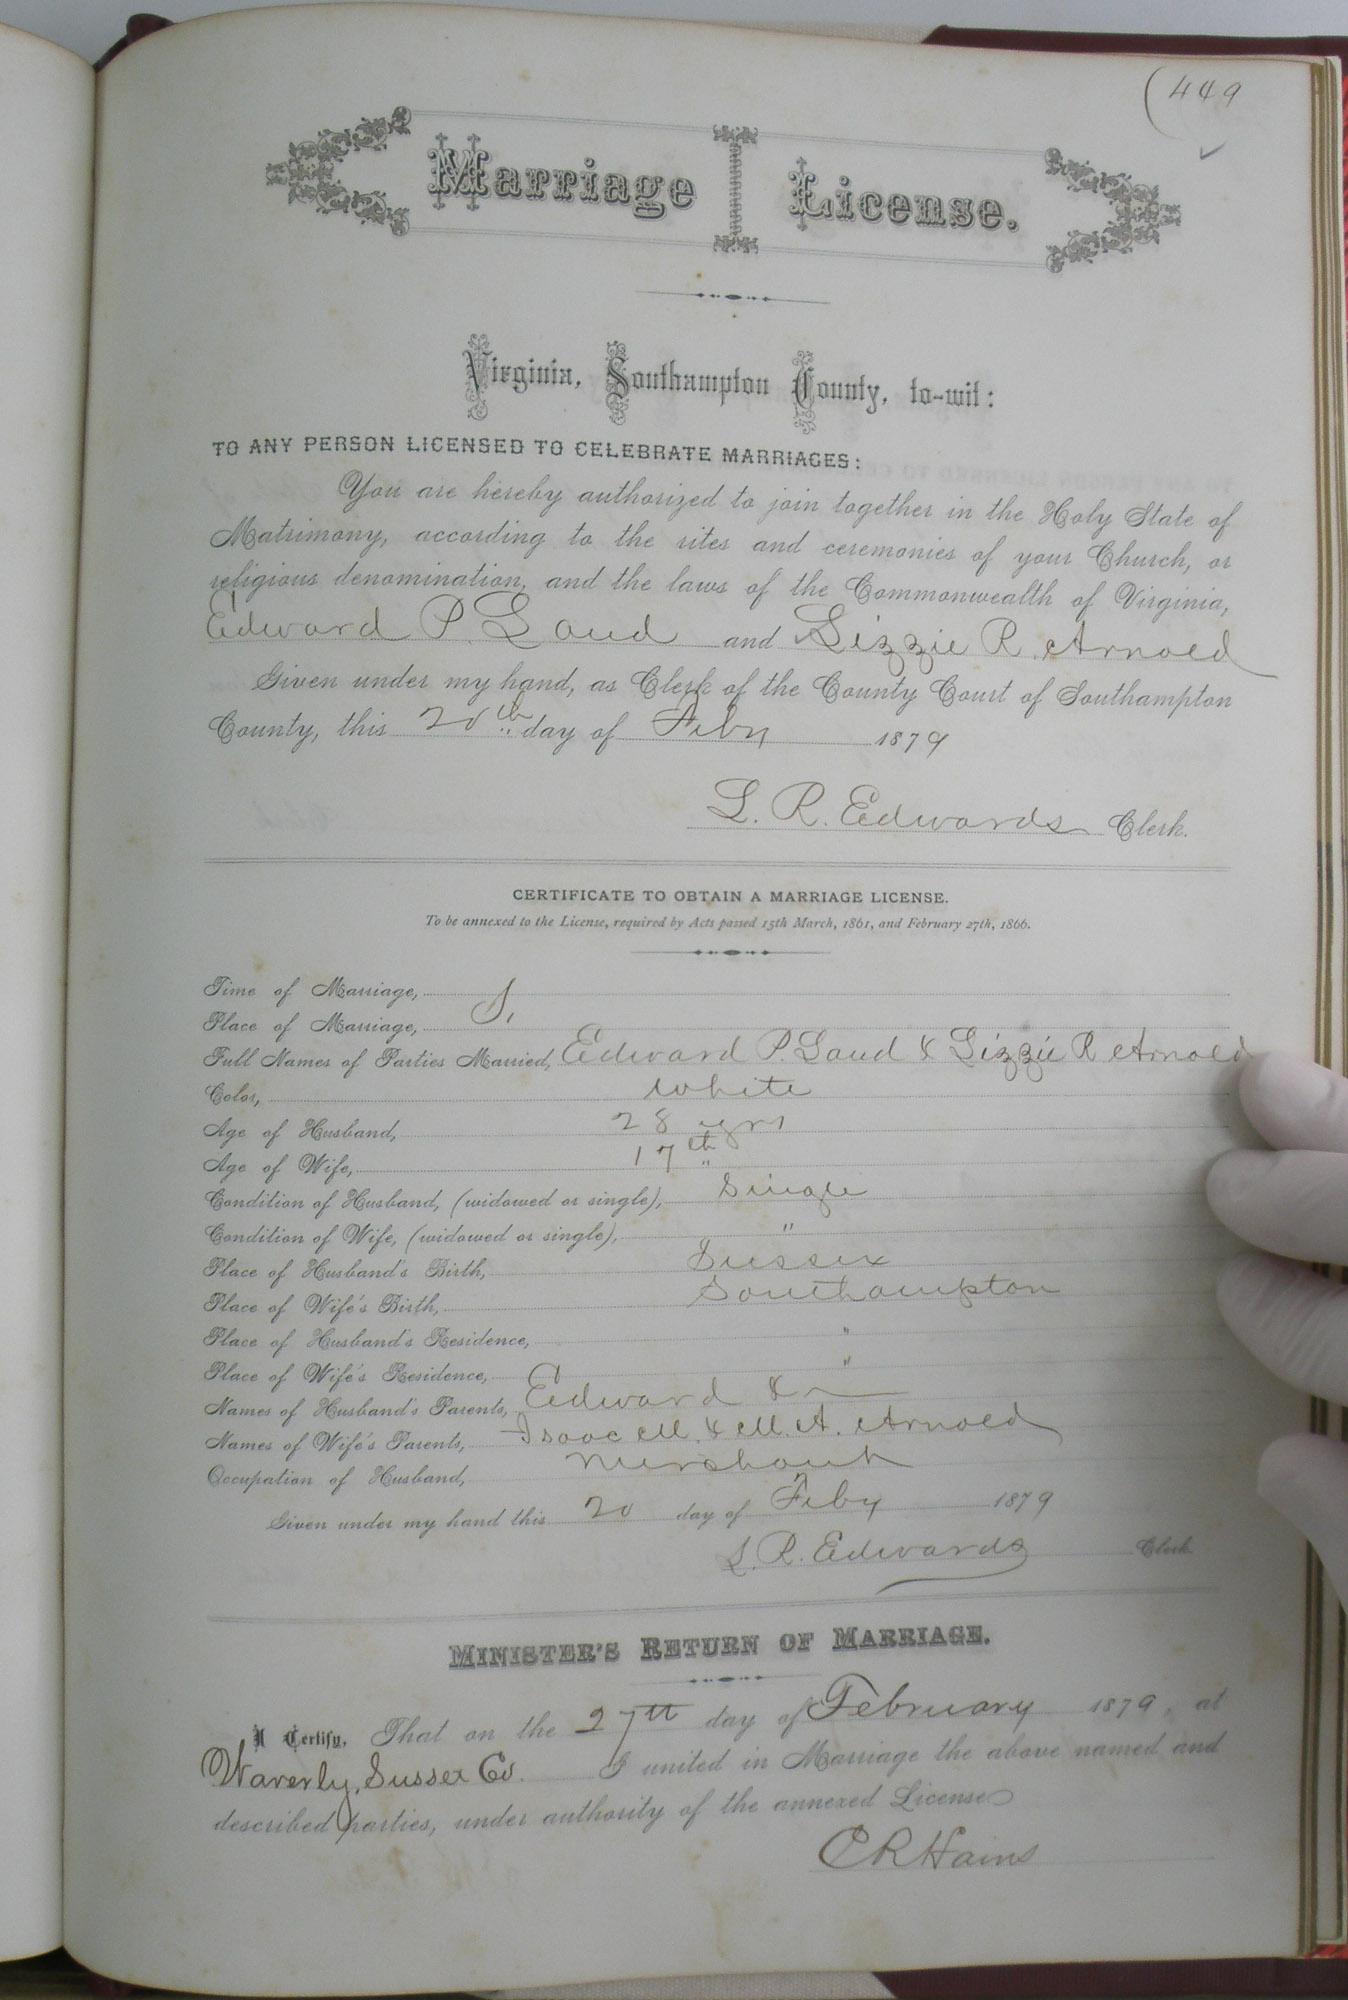 (449
Marriage License.
Virginia, Southampton County, to-wit:
TO ANY PERSON LICENSED TO CELEBRATE MARRIAGES:
You are hereby authorized to join together in the Holy State of
Matrimony, according to the rites and ceremonies of your Church, or
religious denomination, and the laws of the Commonwealth of Virginia,
Edward P. Laud and Lizzie R. Arnold
Given under my hand, as Clerk of the County Court of Southampton
County, this 20th day of Feby 1879
L. R. Edwards Clerk.
CERTIFICATE TO OBTAIN A MARRIAGE LICENSE.
To be annexed to the License, required by Acts passed 15th March, 1861, and February 27th, 1866.
Time of Marriage,
Place of Marriage,
Full Names of Parties Married, Edward P. Laud & Lizzie R Arnold
Color, White
Age of Husband, 28 yrs
Age of Wife, 17th "
Condition of Husband, (widowed or single), Single
Condition of Wife, (widowed or single), "
Place of Husband's Birth, Sussex
Place of Wife's Birth, Southampton
Place of Husband's Residence, "
Place of Wife's Residence, "
Names of Husband's Parents, Edward & —
Names of Wife's Parents, Isaac M. & M. A. Arnold
Occupation of Husband, Merchant
Given under my hand this 20 day of Feby 1879
L. R. Edwards Clerk
MINISTER'S RETURN OF MARRIAGE.
I Certify, That on the 27th day of February 1879, at
Waverly, Sussex Co. I united in Marriage the above named and
described parties, under authority of the annexed License
C R Hains